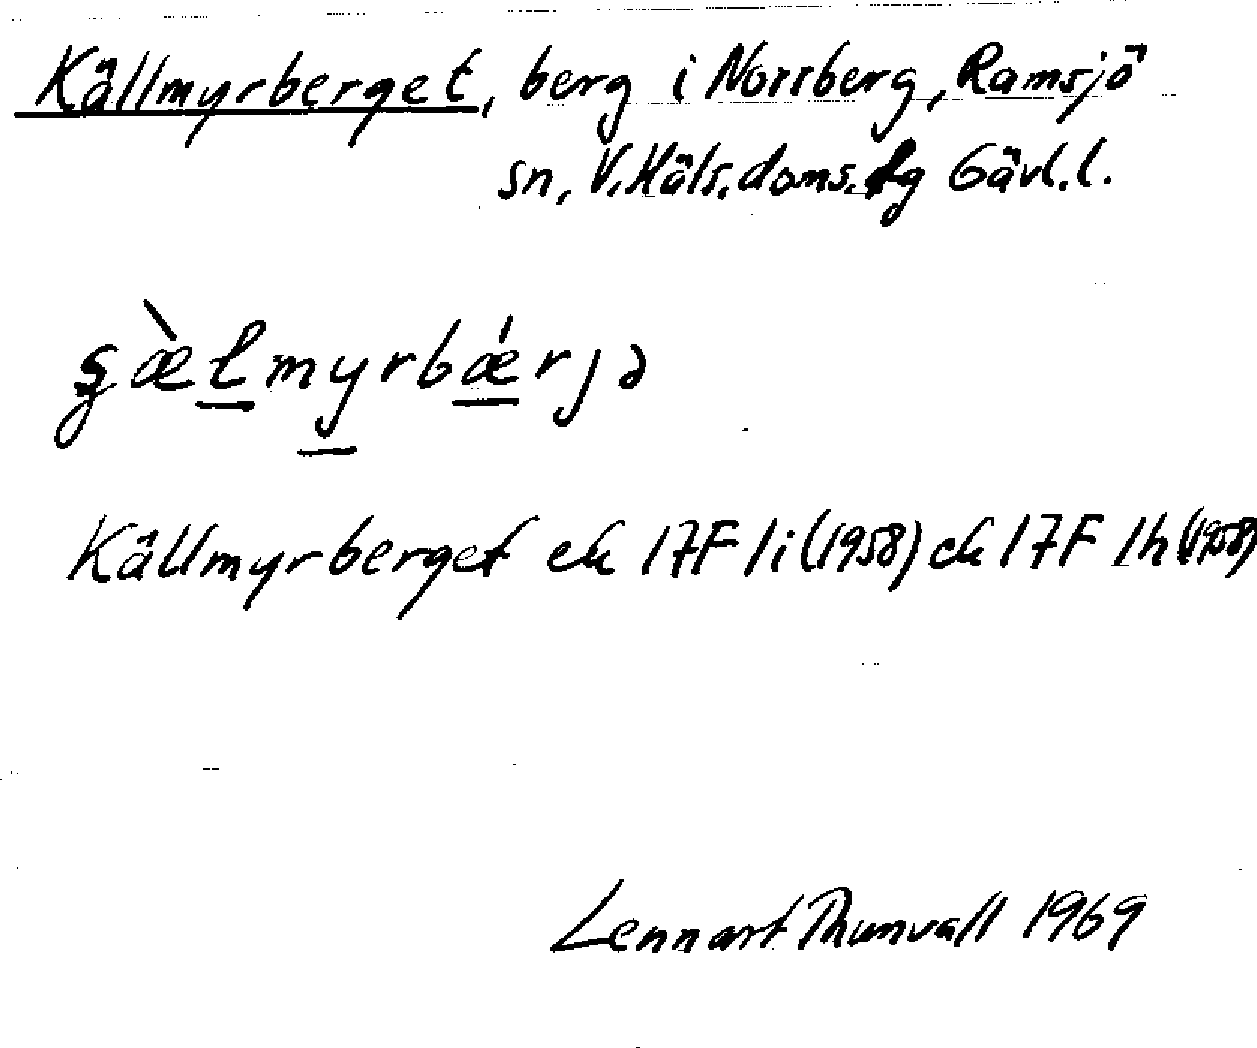 Källmyrberget, berg i Norrberg, Ramsjö
sn, V. Häls. doms. fg Gävl. l.
ʂæ̀łmyrbǽrjə
Källmyrberget ek 17F 1i (1958) ek 17F 1h (1958)
Lennart Thunvall 1969